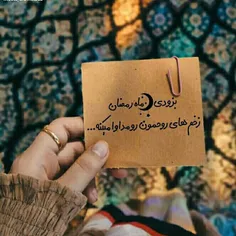 بزودی ماه رمضان
زخم های روحمون رو مداوا میکنه...